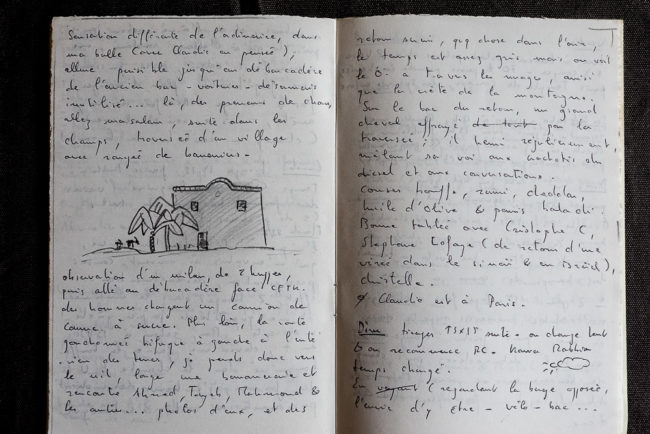 Sensation différente de l'adinerice, dans
ma bulle (avec Claudio en pensée),
allure paisible jusqu'au débarcadère
de l'ancien bac - voitures - désormais
inutilisé... là, des preneurs de chaux,
allez masalam, suite dans les
champs, traversée d'un village
avec rangée de bananiers -
observation d'un milan, de 2 huppes,
puis allé au débarcadère face
des hommes chargent un camion de
canne à sucre. Plus loin, la route
goudronnée bifurque à gauche à l'inté
rieur des terres, je prends donc vers
le nil, longe une bananeraie et
rencontre Ahmed, Mahmoud &
les autres... photos d'eux, et des
retour suivi, qq chose dans l'air,
le temps est assez gris mais on voit
le à travers les nuages, ainsi
que la crête de la montagne.
Sur le bac du retour, un grand
cheval effrayé de tout par la
traversée, il hennit régulièrement,
mêlant sa voix aux hachotis du
diesel et aux conversations.
courses
huile d'olive & pain baladi.
Bonne tablée avec Cristophe C,
Stéphane Lafage (de retour d'une
virée dans le sinaï & en Israël),
christelle.
Claudio est à Paris.
Dim. tirages 15x15 suite - on change tout
& on recommence RC -
temps changé.
En voyant (regardant la berge opposée,
l'envie d'y être - vélo - bac...